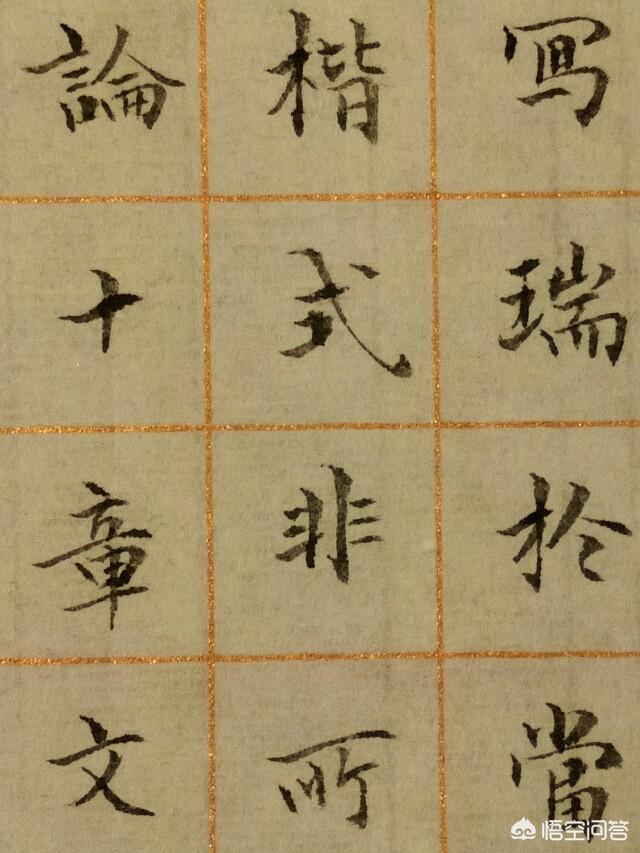 寫瑞於當
楷式非所
論十章文
悟空问答